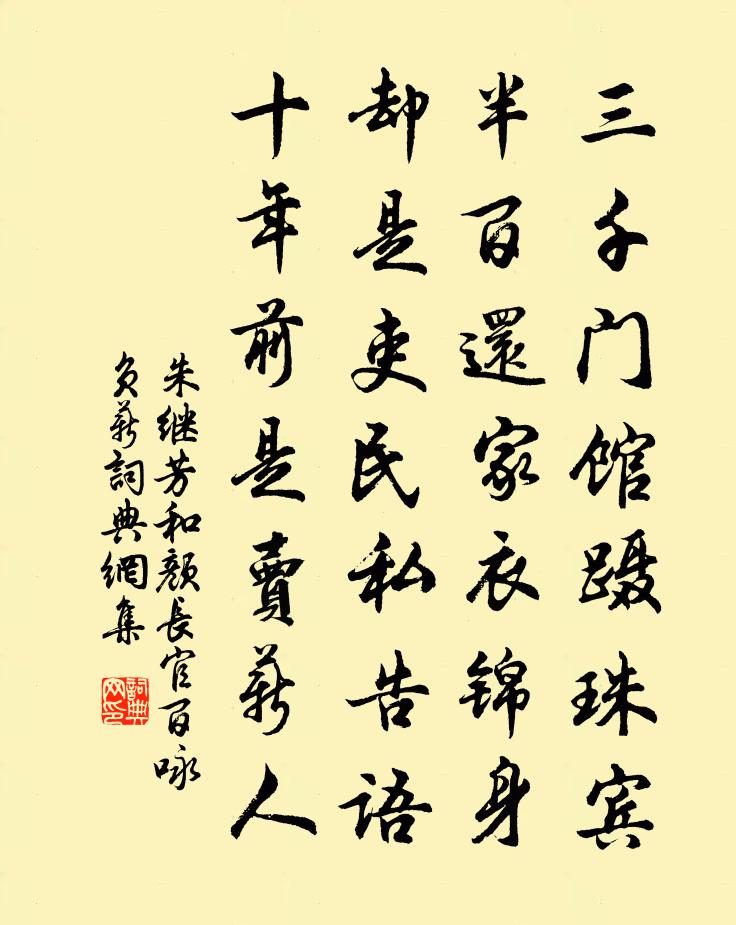 三千门馆蹑珠宾
半百還家衣锦身
却是吏民私告语
十年前是賣薪人
朱继芳和颜長官百咏
负薪詞典網集
詞典
网印